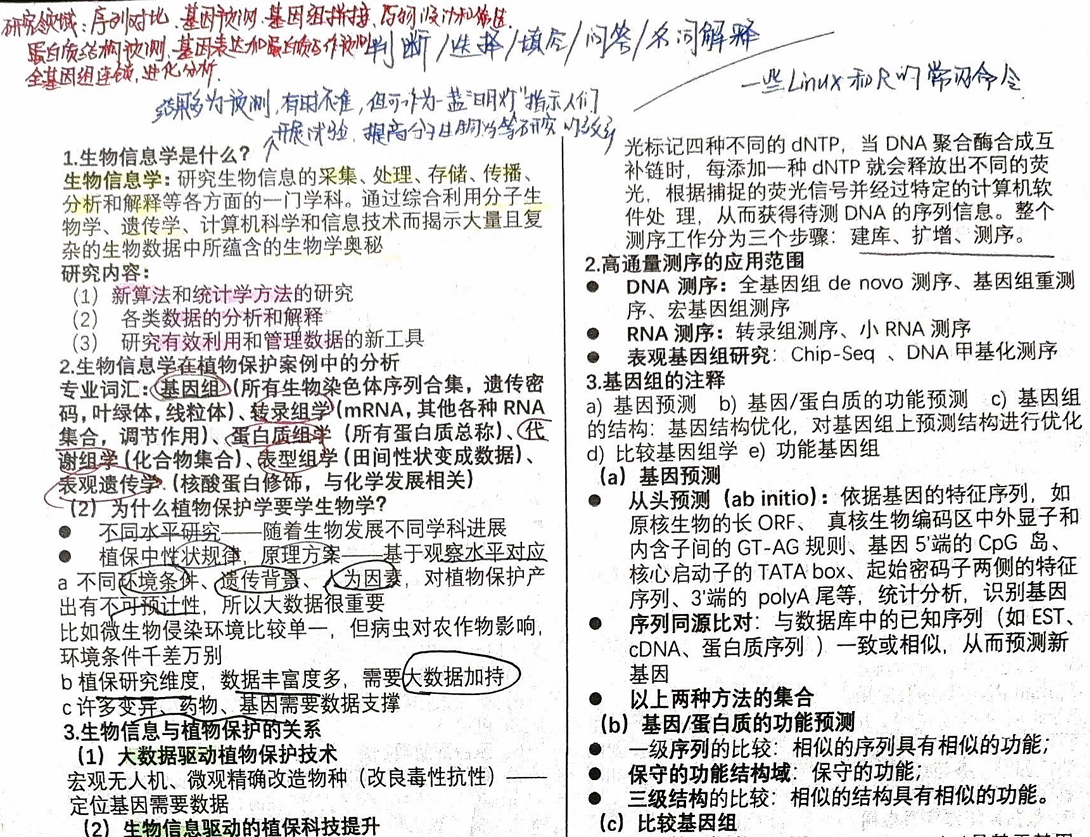 研究领域：序列对比、基因预测、基因组拼接、药物设计和筛选
蛋白质结构预测、基因表达和蛋白质互作预测
全基因组连锁、进化分析.
判断/选择/填空/问答/名词解释
一些Linux和R的常用命令
结果多为预测,有时不准,但可作为一盏"明灯"指示人们
开展试验,提高分子生物学等研究的效率
1.生物信息学是什么？
生物信息学：研究生物信息的采集、处理、存储、传播、
分析和解释等各方面的一门学科。通过综合利用分子生
物学、遗传学、计算机科学和信息技术而揭示大量且复
杂的生物数据中所蕴含的生物学奥秘
研究内容：
（1） 新算法和统计学方法的研究
（2） 各类数据的分析和解释
（3） 研究有效利用和管理数据的新工具
2.生物信息学在植物保护案例中的分析
专业词汇：基因组（所有生物染色体序列合集，遗传密
码，叶绿体，线粒体）、转录组学（mRNA，其他各种 RNA
集合，调节作用）、蛋白质组学（所有蛋白质总称）、代
谢组学（化合物集合）、表型组学（田间性状变成数据）、
表观遗传学（核酸蛋白修饰，与化学发展相关）
（2）为什么植物保护学要学生物学？
● 不同水平研究——随着生物发展不同学科进展
● 植保中性状规律，原理方案——基于观察水平对应
a 不同环境条件、遗传背景、人为因素，对植物保护产
出有不可预计性，所以大数据很重要
比如微生物侵染环境比较单一，但病虫对农作物影响，
环境条件千差万别
b 植保研究维度，数据丰富度多，需要大数据加持
c 许多变异、药物、基因需要数据支撑
3.生物信息与植物保护的关系
（1）大数据驱动植物保护技术
宏观无人机、微观精确改造物种（改良毒性抗性）——
定位基因需要数据
（2）生物信息驱动的植保科技提升
光标记四种不同的 dNTP，当 DNA 聚合酶合成互
补链时，每添加一种 dNTP 就会释放出不同的荧
光，根据捕捉的荧光信号并经过特定的计算机软
件处 理，从而获得待测 DNA 的序列信息。整个
测序工作分为三个步骤：建库、扩增、测序。
2.高通量测序的应用范围
● DNA 测序：全基因组 de novo 测序、基因组重测
序、宏基因组测序
● RNA 测序：转录组测序、小 RNA 测序
● 表观基因组研究：Chip-Seq 、DNA 甲基化测序
3.基因组的注释
a) 基因预测 b) 基因/蛋白质的功能预测 c) 基因组
的结构：基因结构优化，对基因组上预测结构进行优化
d) 比较基因组学 e) 功能基因组
（a）基因预测
● 从头预测（ab initio）：依据基因的特征序列，如
原核生物的长 ORF、 真核生物编码区中外显子和
内含子间的 GT-AG 规则、基因 5'端的 CpG 岛、
核心启动子的 TATA box、起始密码子两侧的特征
序列、3'端的 polyA 尾等，统计分析，识别基因
● 序列同源比对：与数据库中的已知序列（如 EST、
cDNA、蛋白质序列 ）一致或相似，从而预测新
基因
● 以上两种方法的集合
（b）基因/蛋白质的功能预测
● 一级序列的比较：相似的序列具有相似的功能；
● 保守的功能结构域：保守的功能；
● 三级结构的比较：相似的结构具有相似的功能。
（c）比较基因组